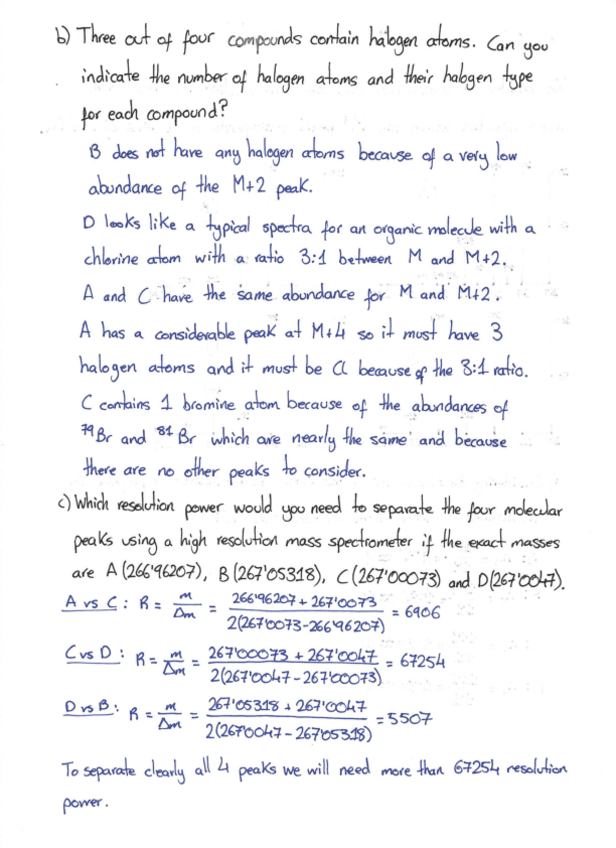 b) Three out of four compounds contain halogen atoms. Can you
indicate the number of halogen atoms and their halogen type
for each compound?
B does not have any halogen atoms because of a very low
abundance of the M+2 peak.
D looks like a typical spectra for an organic molecule with a
chlorine atom with a ratio 3:1 between M and M+2.
A and C have the same abundance for M and M+2.
A has a considerable peak at M+4 so it must have 3
halogen atoms and it must be Cl because of the 3:1 ratio.
C contains 1 bromine atom because of the abundances of
⁷⁹Br and ⁸¹Br which are nearly the same and because
there are no other peaks to consider.
c) Which resolution power would you need to separate the four molecular
peaks using a high resolution mass spectrometer if the exact masses
are A (266'96207), B (267'05318), C (267'00073) and D (267'0047).
A vs C: R = m/Δm = 266'96207 + 267'0073 / 2(267'0073 - 266'96207) = 6906
C vs D: R = m/Δm = 267'00073 + 267'0047 / 2(267'0047 - 267'00073) = 67254
D vs B: R = m/Δm = 267'05318 + 267'0047 / 2(267'0047 - 267'05318) = 5507
To separate clearly all 4 peaks we will need more than 67254 resolution
power.